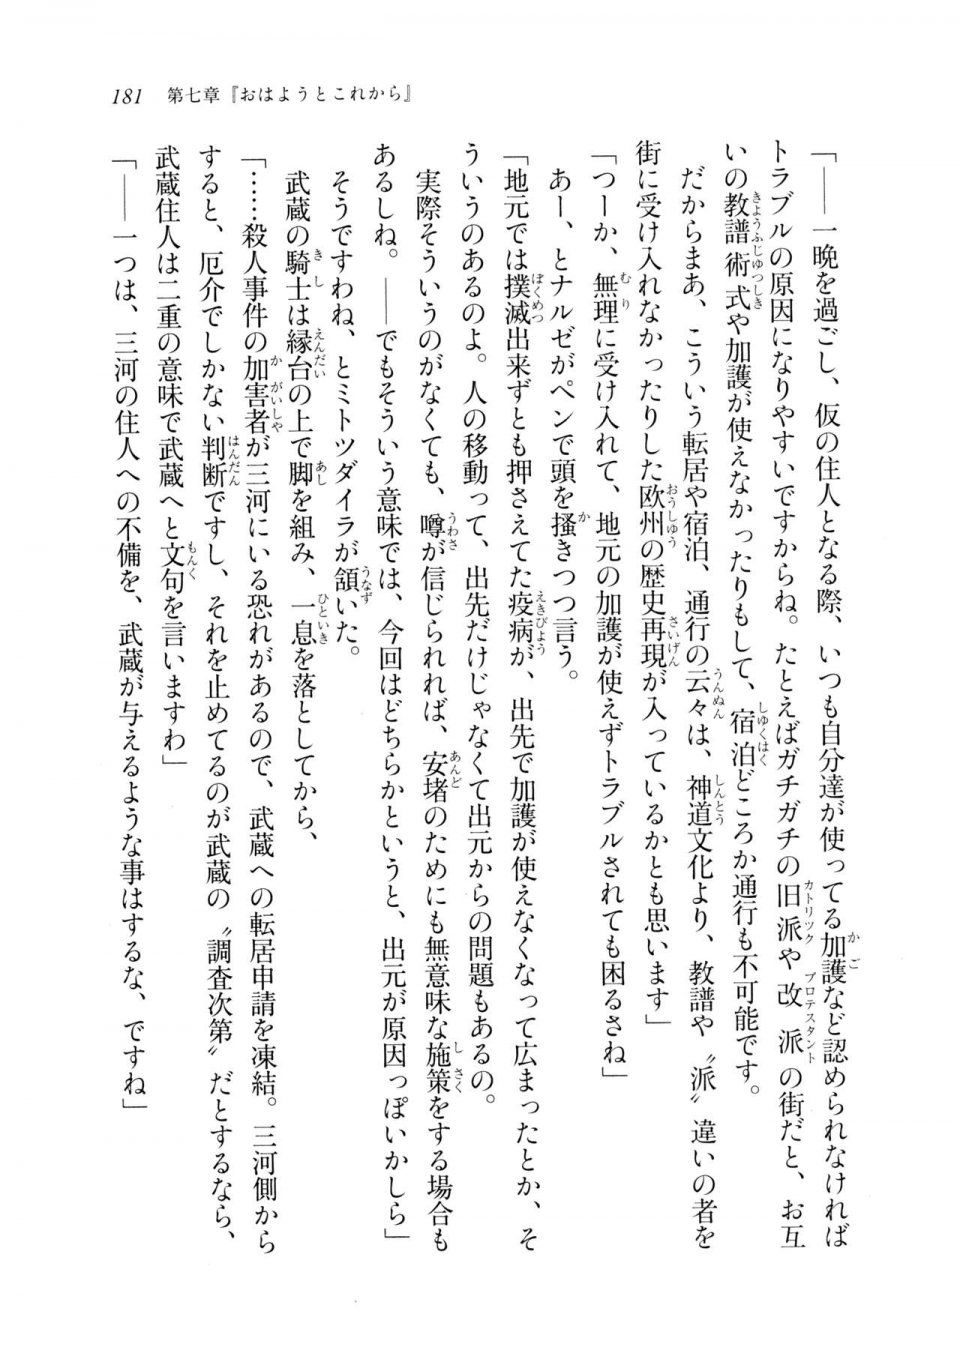 181　第七章『おはようとこれから』
「――一晩を過ごし、仮の住人となる際、いつも自分達が使ってる加護など認められなければ
トラブルの原因になりやすいですからね。たとえばガチガチの旧派や改派の街だと、お互
いの教譜術式や加護が使えなかったりもして、宿泊どころか通行も不可能です。
だからまあ、こういう転居や宿泊、通行の云々は、神道文化より、教譜や〝派〟違いの者を
街に受け入れなかったりした欧州の歴史再現が入っているかとも思います」
「つーか、無理に受け入れて、地元の加護が使えずトラブルされても困るさね」
あー、とナルゼがペンで頭を掻きつつ言う。
「地元では撲滅出来ずとも押さえてた疫病が、出先で加護が使えなくなって広まったとか、そ
ういうのあるのよ。人の移動って、出先だけじゃなくて出元からの問題もあるの。
実際そういうのがなくても、噂が信じられれば、安堵のためにも無意味な施策をする場合も
あるしね。――でもそういう意味では、今回はどちらかというと、出元が原因っぽいかしら」
そうですわね、とミトツダイラが頷いた。
武蔵の騎士は縁台の上で脚を組み、一息を落としてから、
「……殺人事件の加害者が三河にいる恐れがあるので、武蔵への転居申請を凍結。三河側から
すると、厄介でしかない判断ですし、それを止めてるのが武蔵の〝調査次第〟だとするなら、
武蔵住人は二重の意味で武蔵へと文句を言いますわ」
「――一つは、三河の住人への不備を、武蔵が与えるような事はするな、ですね」